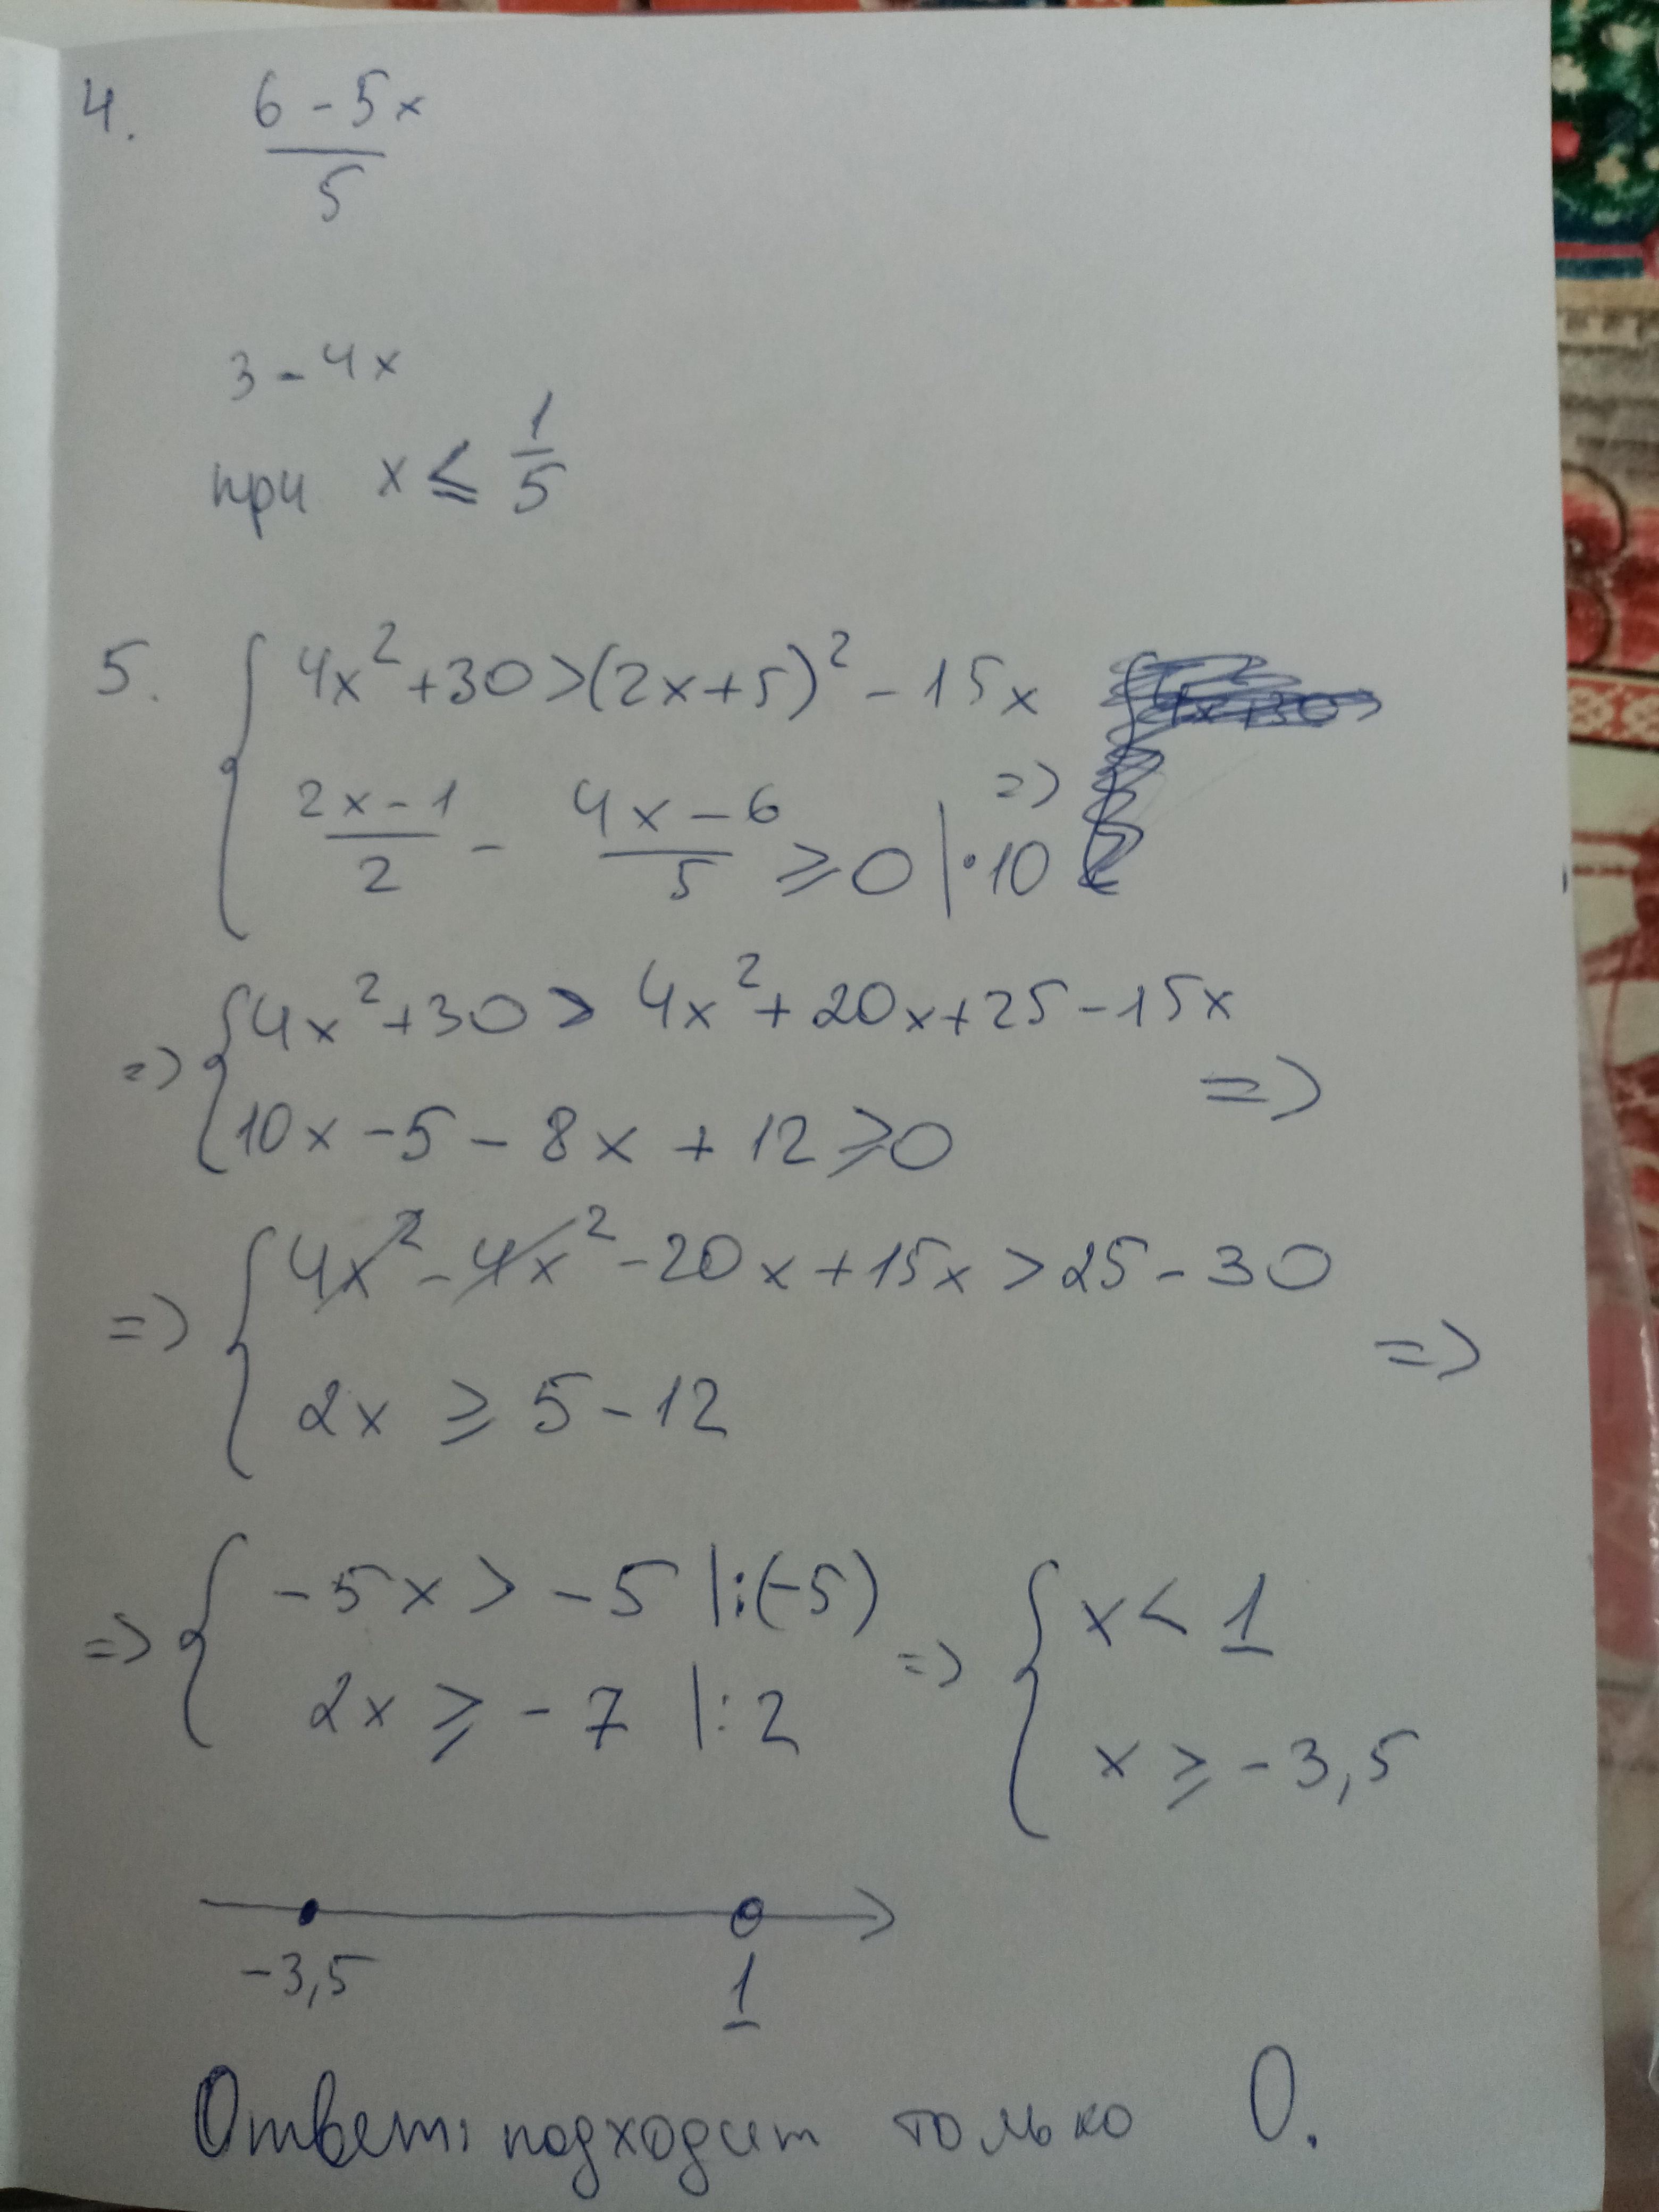 4. 6-5x
5
3-4x
при x ≤ 1/5
5. { 4x²+30>(2x+5)²-15x
(2x-1)/2 - (4x-6)/5 ≥0 |·10 =>
=> { 4x²+30 > 4x²+20x+25-15x
10x-5-8x+12≥0 =>
=> { 4x²-4x²-20x+15x>25-30
2x ≥ 5-12 =>
=> { -5x > -5 |:(-5) => { x < 1
2x ≥ -7 |:2 x ≥ -3,5
-3,5 1
Ответ: подходит только 0.